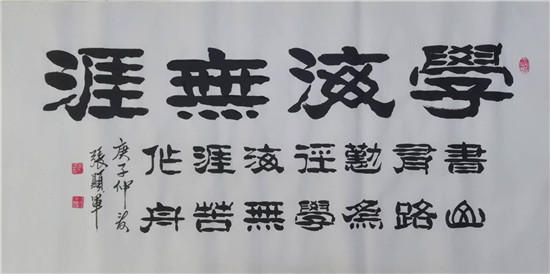 學海無涯
書山
有路
勤為
徑學
海無
涯苦
作舟
庚子仲夏
張顯軍